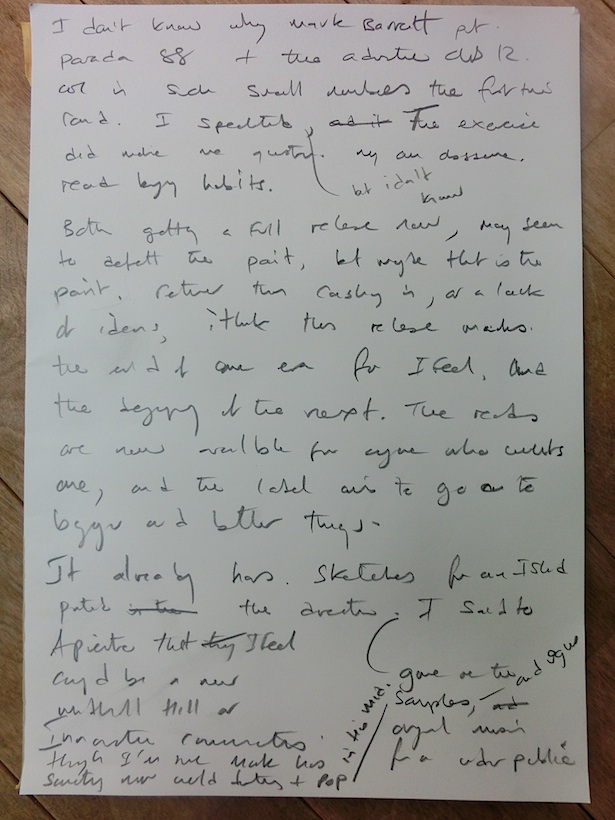 I don't know why Mark Barrett put
parada 88 + the
in such small numbers the first time
round. I The exercise
did make me question my own
read buying habits.
but i don't
know
Both getting a full release now, may seem
to defeat the point, but maybe that is the
point. rather than cashing in, or a lack
of ideas, i think this release marks
the end of one era for IFeel, and
the beginning of the next. The records
are now available for anyone who wants
one, and the label aims to go on to
bigger and better things.
It already has. Sketches for an Island
the direction. I said to
that they IFeel
could be a new
or
though I'm sure Mark has
something more + Pop
in his mind.
gone on the and vague
samples,
original music
for a wider public